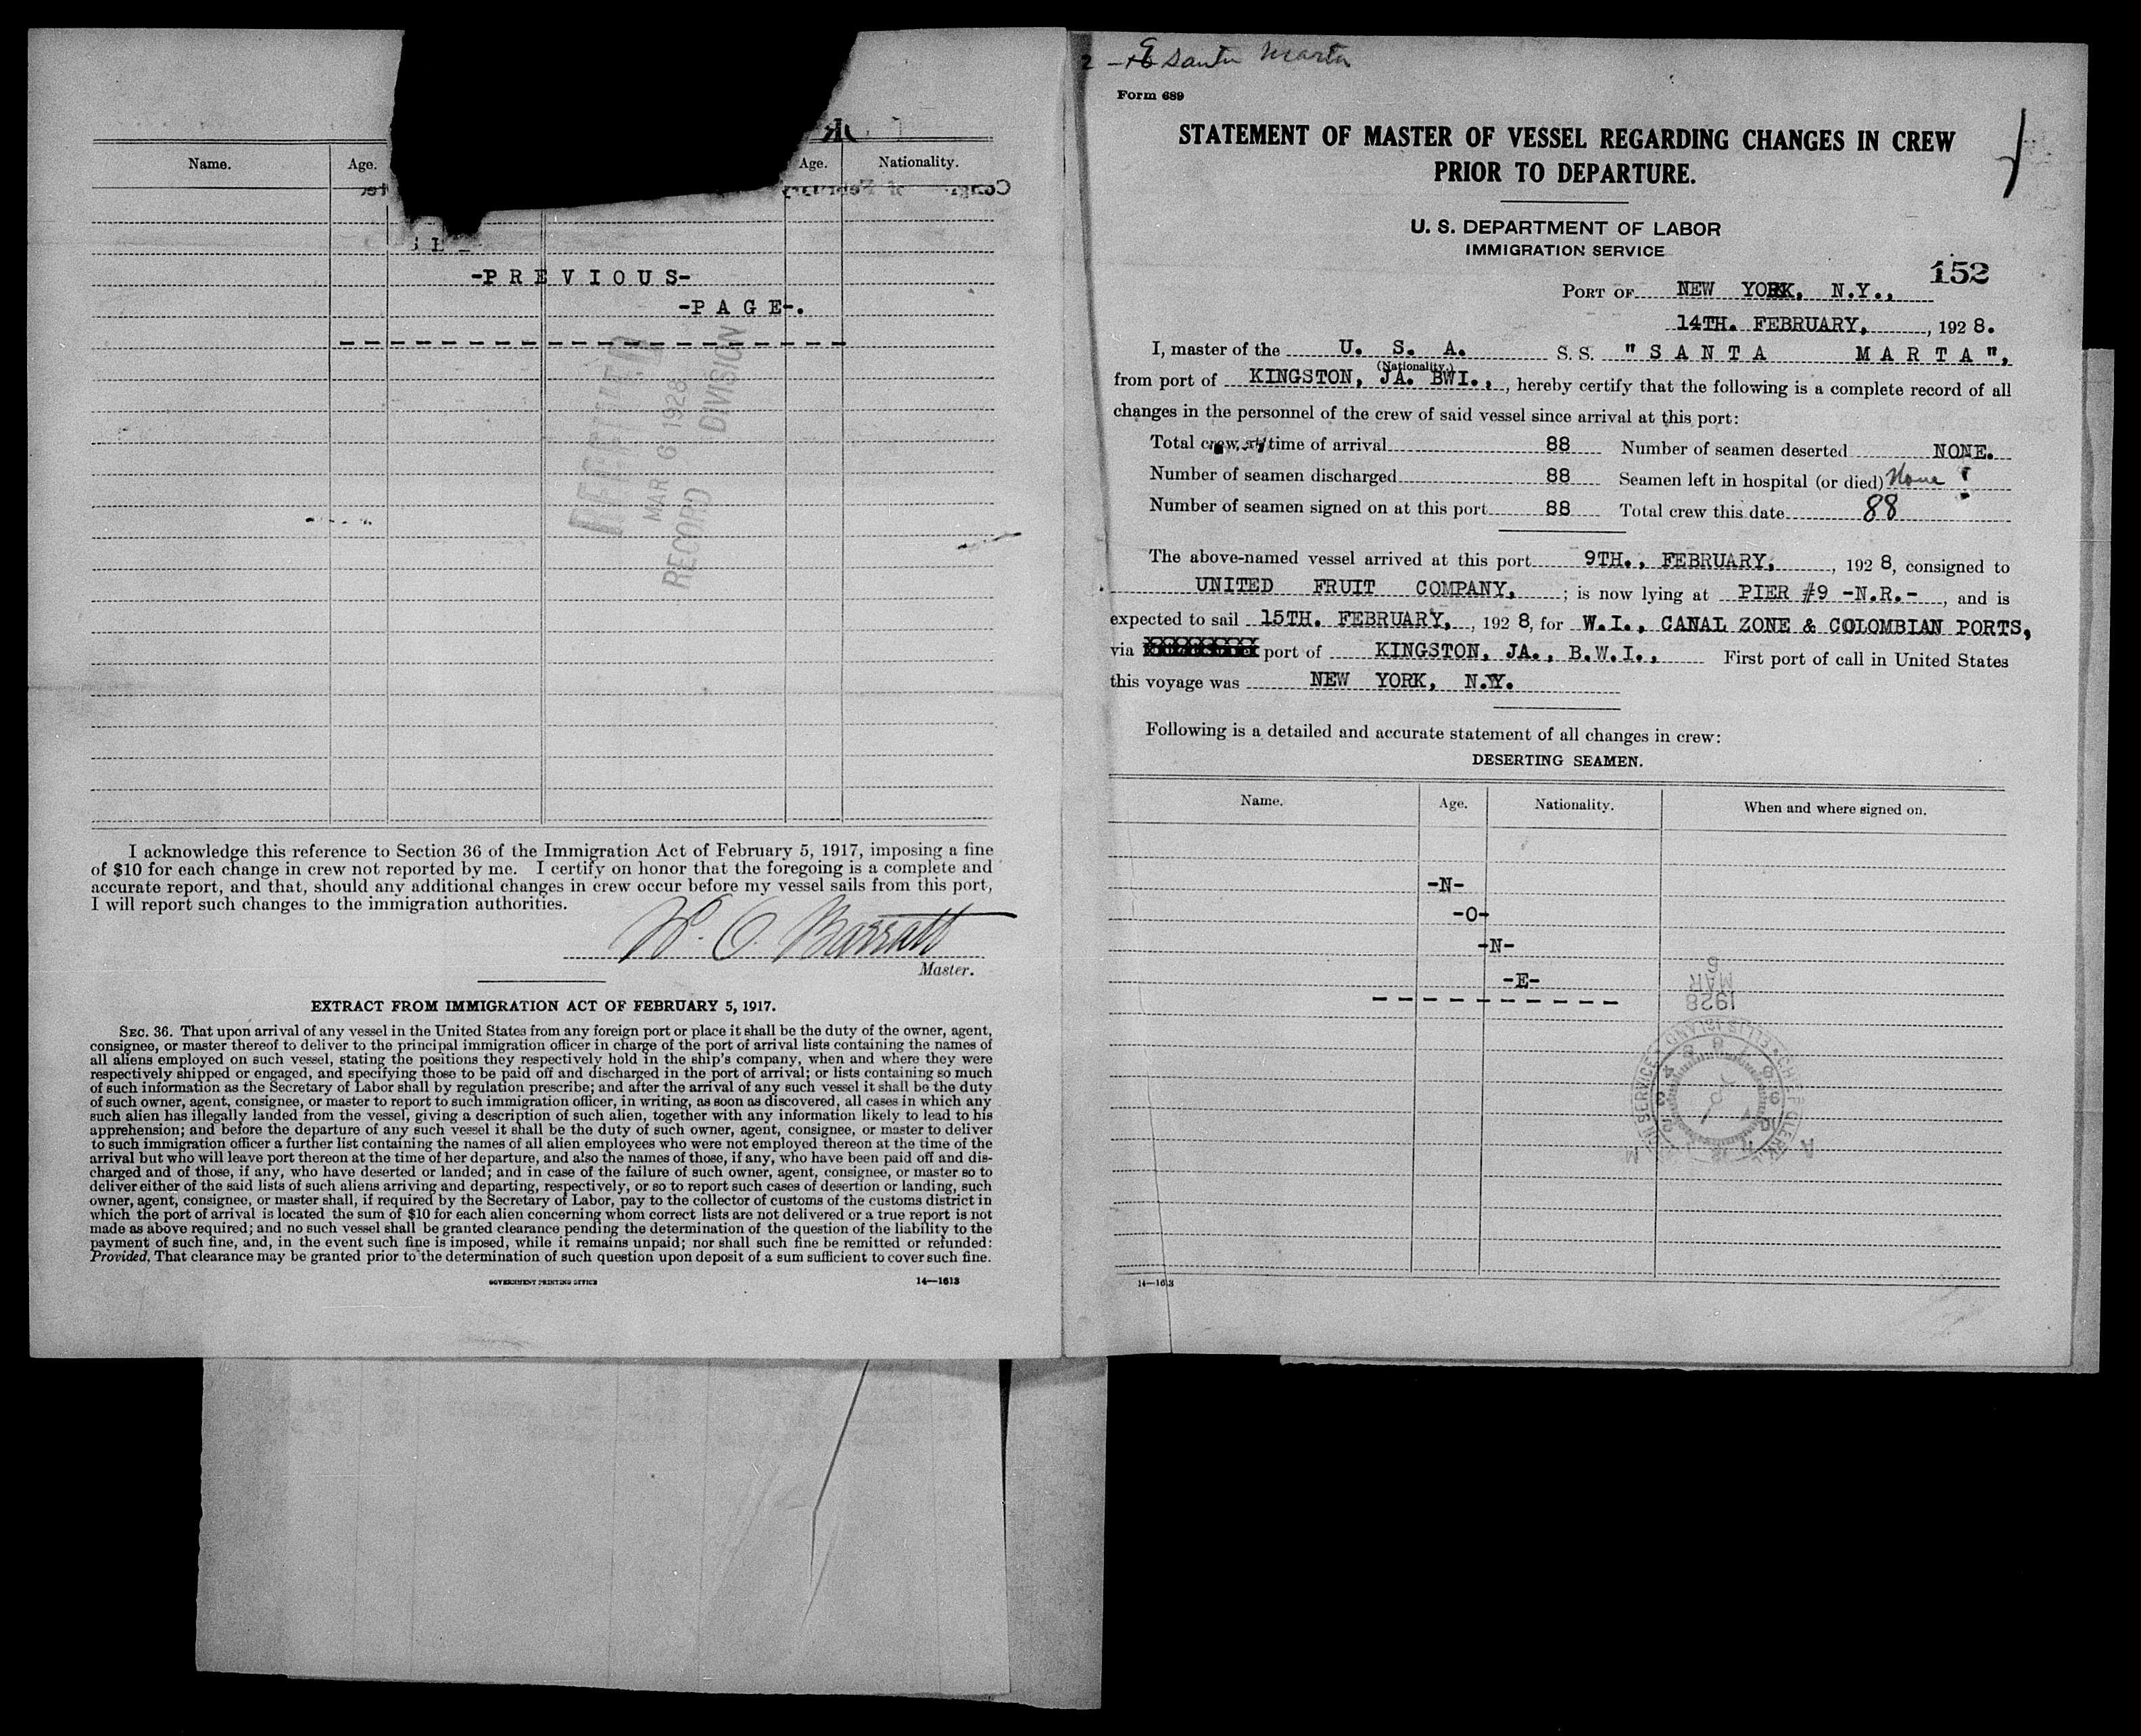 Name.
Age.
Age.
Nationality.
-P R E V I O U S-
-P A G E-.
RECEIVED
MAR 6 1928
RECORD DIVISION
I acknowledge this reference to Section 36 of the Immigration Act of February 5, 1917, imposing a fine
of $10 for each change in crew not reported by me. I certify on honor that the foregoing is a complete and
accurate report, and that, should any additional changes in crew occur before my vessel sails from this port,
I will report such changes to the immigration authorities.
W. C. Barratt
Master.
EXTRACT FROM IMMIGRATION ACT OF FEBRUARY 5, 1917.
SEC. 36. That upon arrival of any vessel in the United States from any foreign port or place it shall be the duty of the owner, agent,
consignee, or master thereof to deliver to the principal immigration officer in charge of the port of arrival lists containing the names of
all aliens employed on such vessel, stating the positions they respectively hold in the ship's company, when and where they were
respectively shipped or engaged, and specifying those to be paid off and discharged in the port of arrival; or lists containing so much
of such information as the Secretary of Labor shall by regulation prescribe; and after the arrival of any such vessel it shall be the duty
of such owner, agent, consignee, or master to report to such immigration officer, in writing, as soon as discovered, all cases in which any
such alien has illegally landed from the vessel, giving a description of such alien, together with any information likely to lead to his
apprehension; and before the departure of any such vessel it shall be the duty of such owner, agent, consignee, or master to deliver
to such immigration officer a further list containing the names of all alien employees who were not employed thereon at the time of the
arrival but who will leave port thereon at the time of her departure, and also the names of those, if any, who have been paid off and dis-
charged and of those, if any, who have deserted or landed; and in case of the failure of such owner, agent, consignee, or master so to
deliver either of the said lists of such aliens arriving and departing, respectively, or so to report such cases of desertion or landing, such
owner, agent, consignee, or master shall, if required by the Secretary of Labor, pay to the collector of customs of the customs district in
which the port of arrival is located the sum of $10 for each alien concerning whom correct lists are not delivered or a true report is not
made as above required; and no such vessel shall be granted clearance pending the determination of the question of the liability to the
payment of such fine, and, in the event such fine is imposed, while it remains unpaid; nor shall such fine be remitted or refunded:
Provided, That clearance may be granted prior to the determination of such question upon deposit of a sum sufficient to cover such fine.
GOVERNMENT PRINTING OFFICE
14—1613
Santa Marta
Form 689
STATEMENT OF MASTER OF VESSEL REGARDING CHANGES IN CREW
PRIOR TO DEPARTURE.
U. S. DEPARTMENT OF LABOR
IMMIGRATION SERVICE
152
PORT OF NEW YORK, N.Y.,
14TH. FEBRUARY, , 192 8.
I, master of the U. S. A. S. S. "S A N T A M A R T A",
(Nationality.)
from port of KINGSTON, JA. BWI., , hereby certify that the following is a complete record of all
changes in the personnel of the crew of said vessel since arrival at this port:
Total crew at time of arrival 88 Number of seamen deserted NONE.
Number of seamen discharged 88 Seamen left in hospital (or died) None
Number of seamen signed on at this port 88 Total crew this date 88
The above-named vessel arrived at this port 9TH., FEBRUARY, , 192 8, consigned to
UNITED FRUIT COMPANY, ; is now lying at PIER #9 -N.R.- , and is
expected to sail 15TH. FEBRUARY, , 192 8, for W.I., CANAL ZONE & COLOMBIAN PORTS,
via port of KINGSTON, JA., B.W.I., First port of call in United States
this voyage was NEW YORK, N.Y.
Following is a detailed and accurate statement of all changes in crew:
DESERTING SEAMEN.
Name.
Age.
Nationality.
When and where signed on.
-N-
-O-
-N-
-E-
1928
MAR
14—1613